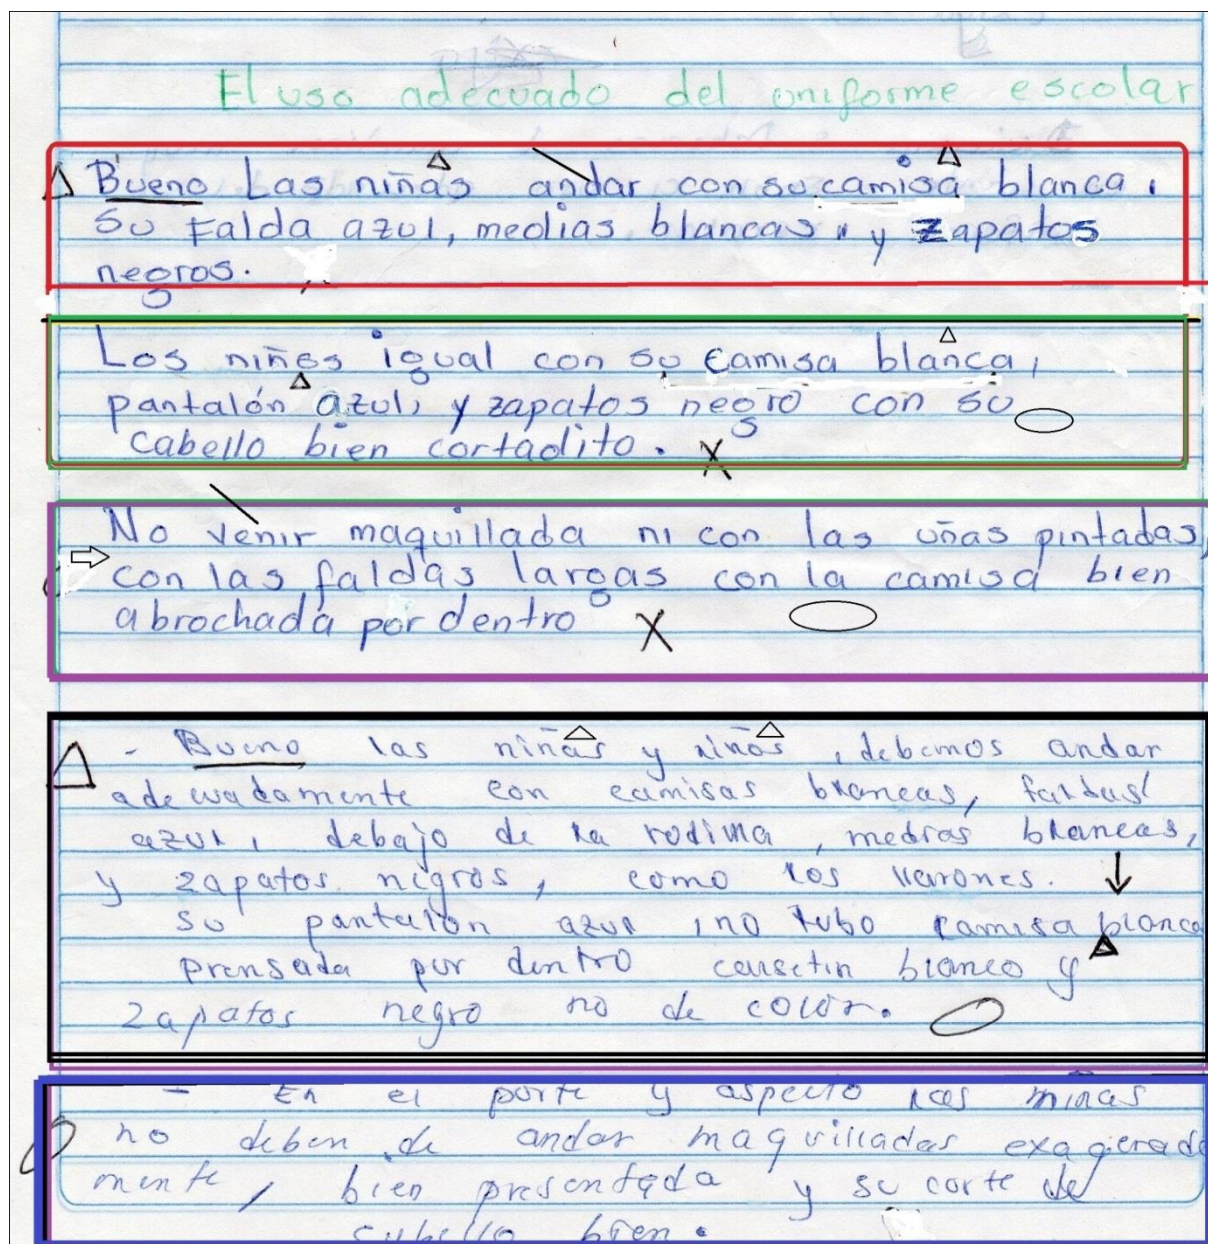 El uso adecuado del uniforme escolar
Bueno Las niñas andar con su camisa blanca,
su Falda azul, medias blancas, y zapatos
negros.
Los niños igual con su camisa blanca,
pantalón azul, y zapatos negro con su
cabello bien cortadito.
No venir maquillada ni con las uñas pintadas,
con las faldas largas con la camisa bien
abrochada por dentro
- Bueno las niñas y niños, debemos andar
adecuadamente con camisas blancas, faldas
azul, debajo de la rodilla, medias blancas,
y zapatos negros, como los varones.
su pantalón azul, no tubo camisa blanca
prensada por dentro calsetin blanco y
zapatos negro no de color.
- En el porte y aspecto las niñas
no deben de andar maquilladas exagerada
mente, bien presentada y su corte de
cabello bien.